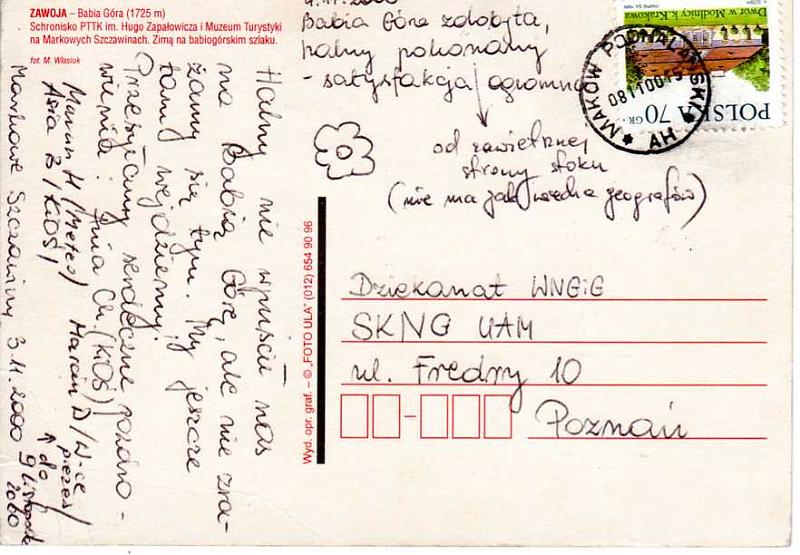 ZAWOJA – Babia Góra (1725 m)
Schronisko PTTK im. Hugo Zapałowicza i Muzeum Turystyki
na Markowych Szczawinach. Zimą na babiogórskim szlaku.
fot. M. Własiuk
4.11.2000
Babia Góra zdobyta,
halny pokonany
- satysfakcja ogromna
od zawietrznej
strony stoku
(nie ma jak wiedza geografów)
Halny nie wpuścił nas
na Babią Górę, ale nie zra-
żamy się tym. My jeszcze
tam wejdziemy!
Przesyłamy serdeczne pozdro-
wienia! Ania Ch. (KiOŚ)
Marcin H /Meteo/ Marcin D /W-ce
prezes/
Asia B /KiOŚ/
↑ do
9 listopada
2000
Markowe Szczawiny 3.11.2000
Wyd. opr. graf. – © „FOTO ULA" (012) 654 90 96
Dwór w Modlnicy k. Krakowa
POLSKA 70 GR
MAKÓW PODHALAŃSKI
081100-15
AH
Dziekanat WNGiG
SKNG UAM
ul. Fredry 10
Poznań